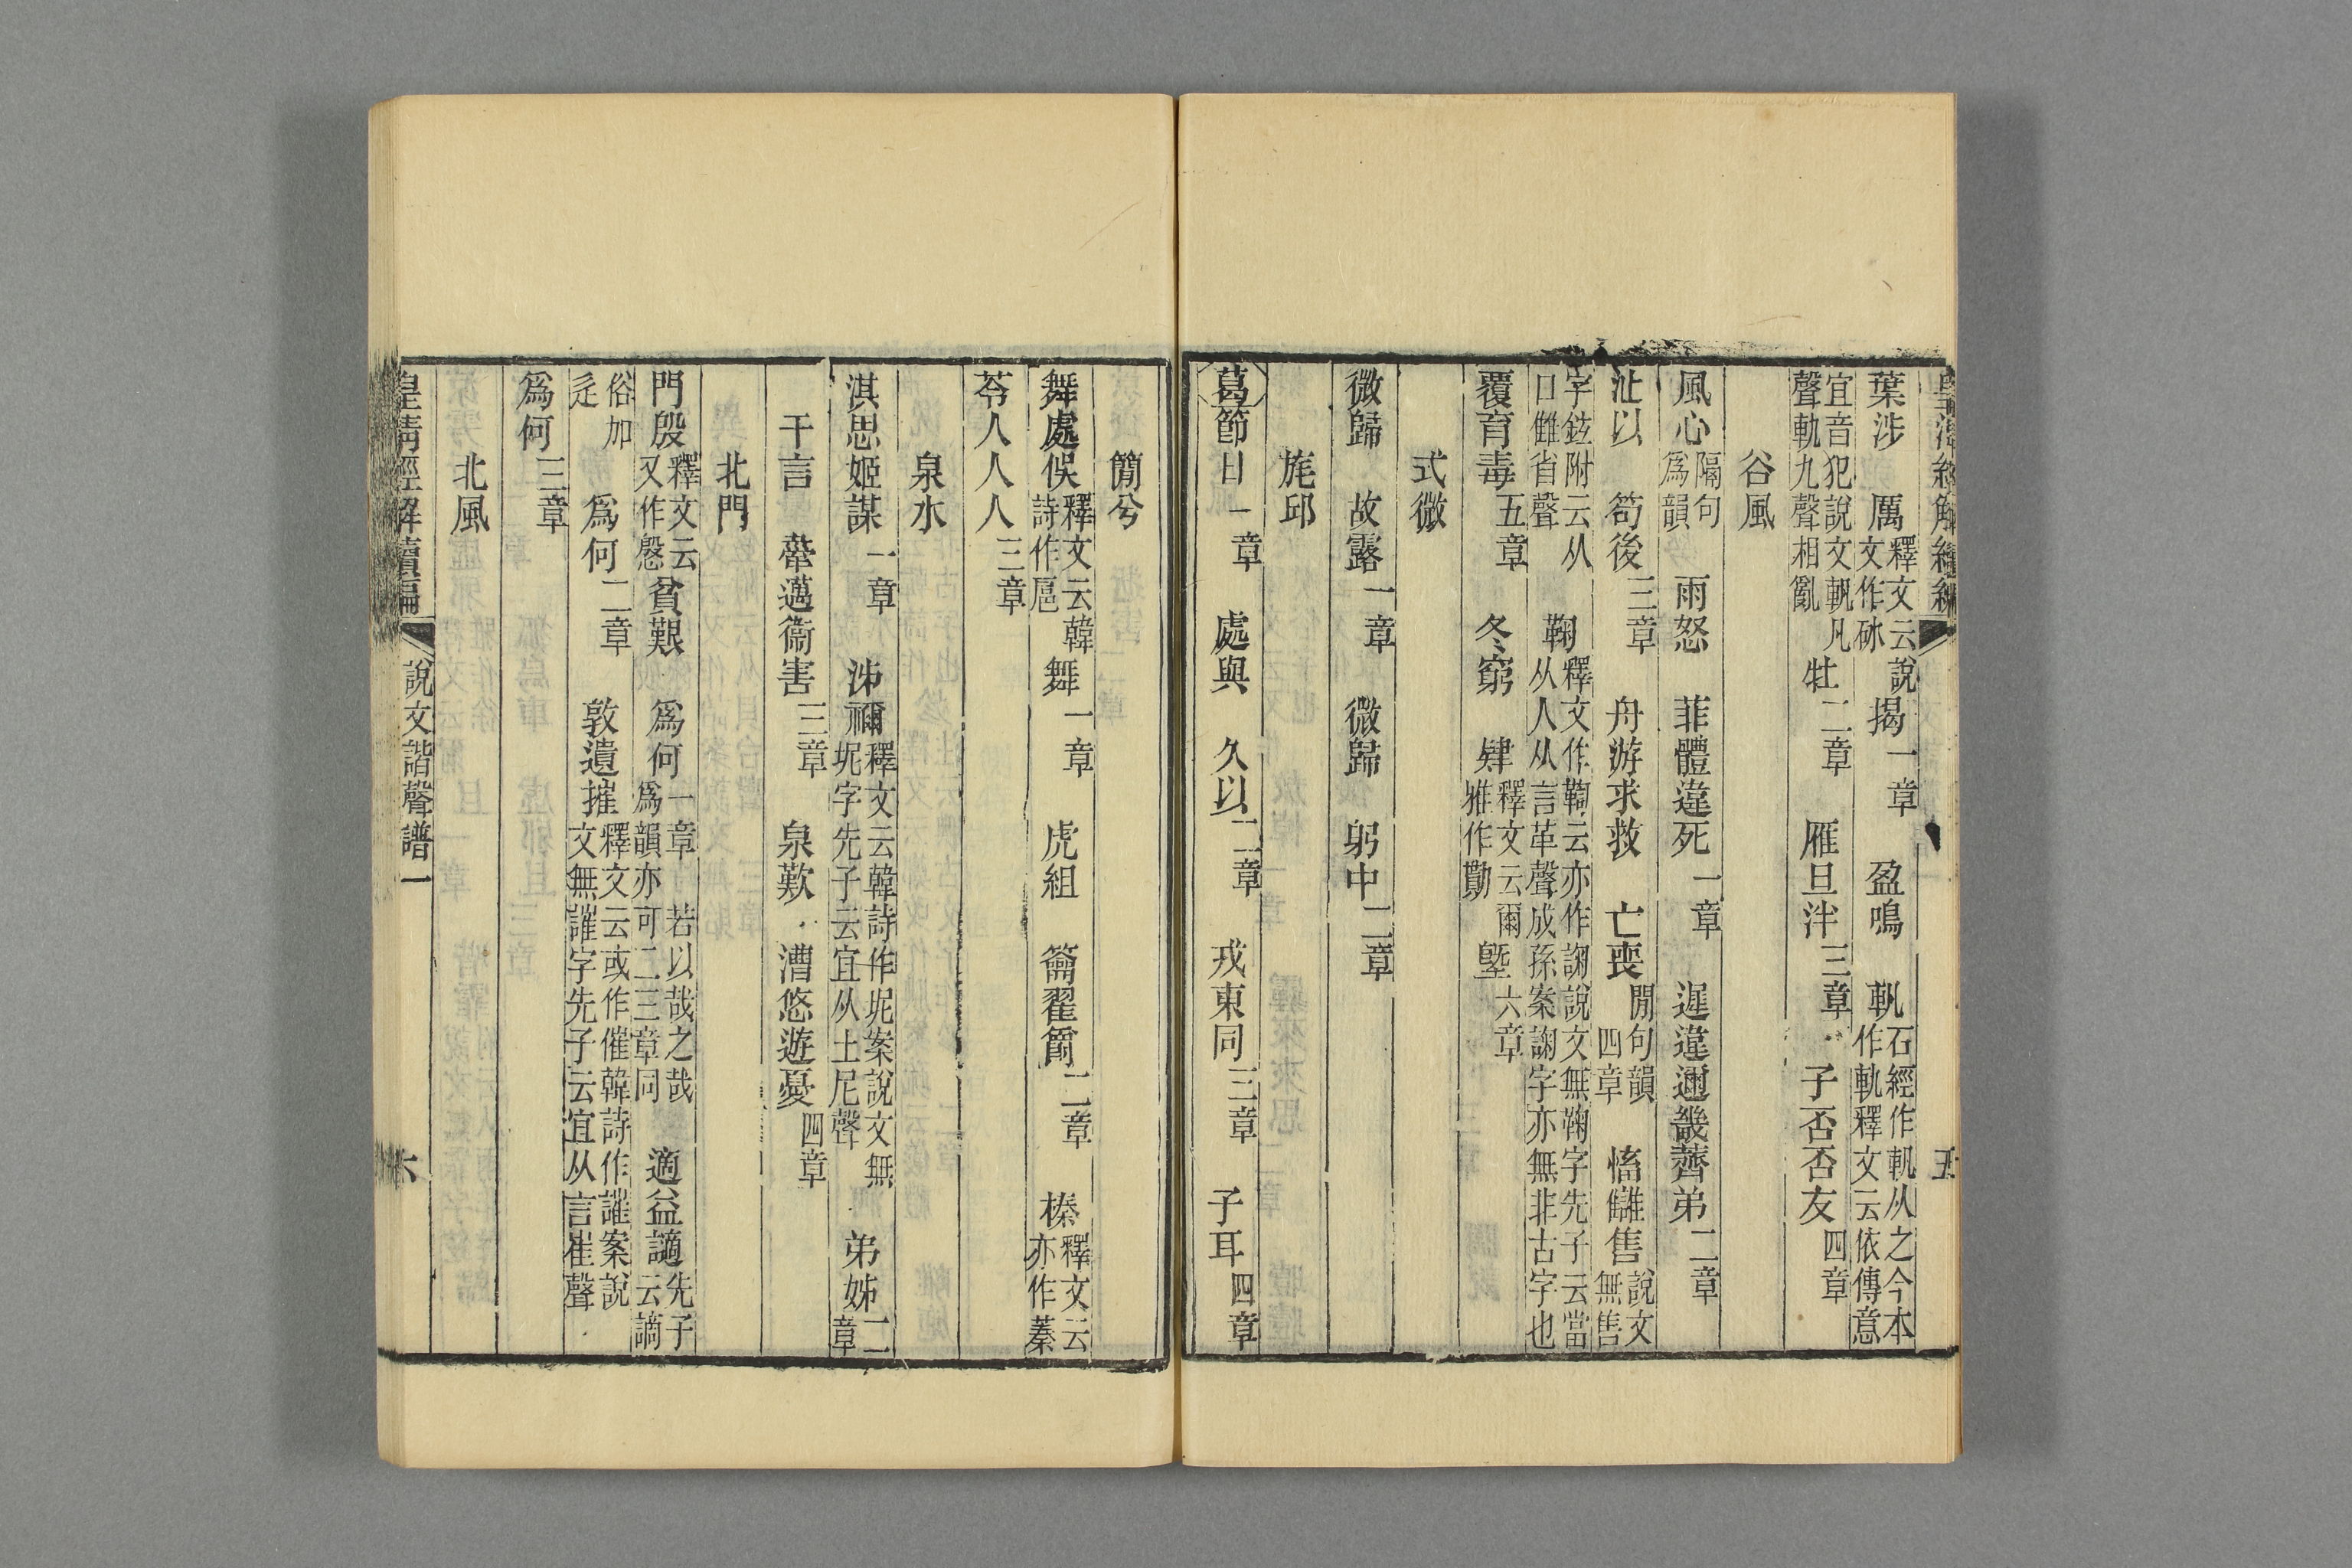 皇清經解續編 五
葉涉 厲釋文云說文作砅 揭一章 盈鳴 軓石經作軓从之今本作軌釋文云依傳意
宜音犯說文軓凡聲軌九聲相亂 牡二章 雁旦泮三章 子否否友四章
谷風
風心隔句為韻 雨怒 菲體違死一章 遲違邇畿薺弟二章
沚以 笱後三章 舟游求救 亡喪閒句韻四章 慉讎售說文無售
字鉉附云从口雔省聲 鞫釋文作鞫云亦作諊說文無鞫字先子云當从人从言革聲成孫案諊字亦無非古字也
覆育毒五章 冬窮 肄釋文云爾雅作勩 墍六章
式微
微歸 故露一章 微歸 躬中二章
旄邱
葛節日一章 處與 久以二章 戎東同三章 子耳四章
簡兮
舞處俁釋文云韓詩作扈 舞一章 虎組 籥翟爵二章 榛釋文云亦作蓁
苓人人人三章
泉水
淇思姬謀一章 泲禰釋文云韓詩作坭案說文無坭字先子云宜从土尼聲 弟姊二章
干言 舝邁衞害三章 泉歎 漕悠遊憂四章
北門
門殷釋文云又作慇 貧艱 爲何一章若以哉之哉爲韻亦可二三章同 適益讁先子云謫
俗加辵 爲何二章 敦遺摧釋文云或作催韓詩作讙案說文無讙字先子云宜从言崔聲
爲何三章
北風
皇清經解續編 說文諧聲譜一 六